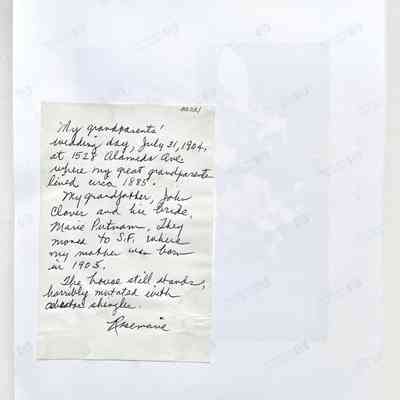 My grandparents'
wedding day, July 31, 1904,
at 1528 Alameda Ave
where my great grandparents
lived circa 1885.
My grandfather, John
Clover and his bride,
Marie Putnam. They
moved to S.F. where
my mother was born
in 1905.
The house still stands,
horribly mutated with
shingles.
Rosemarie